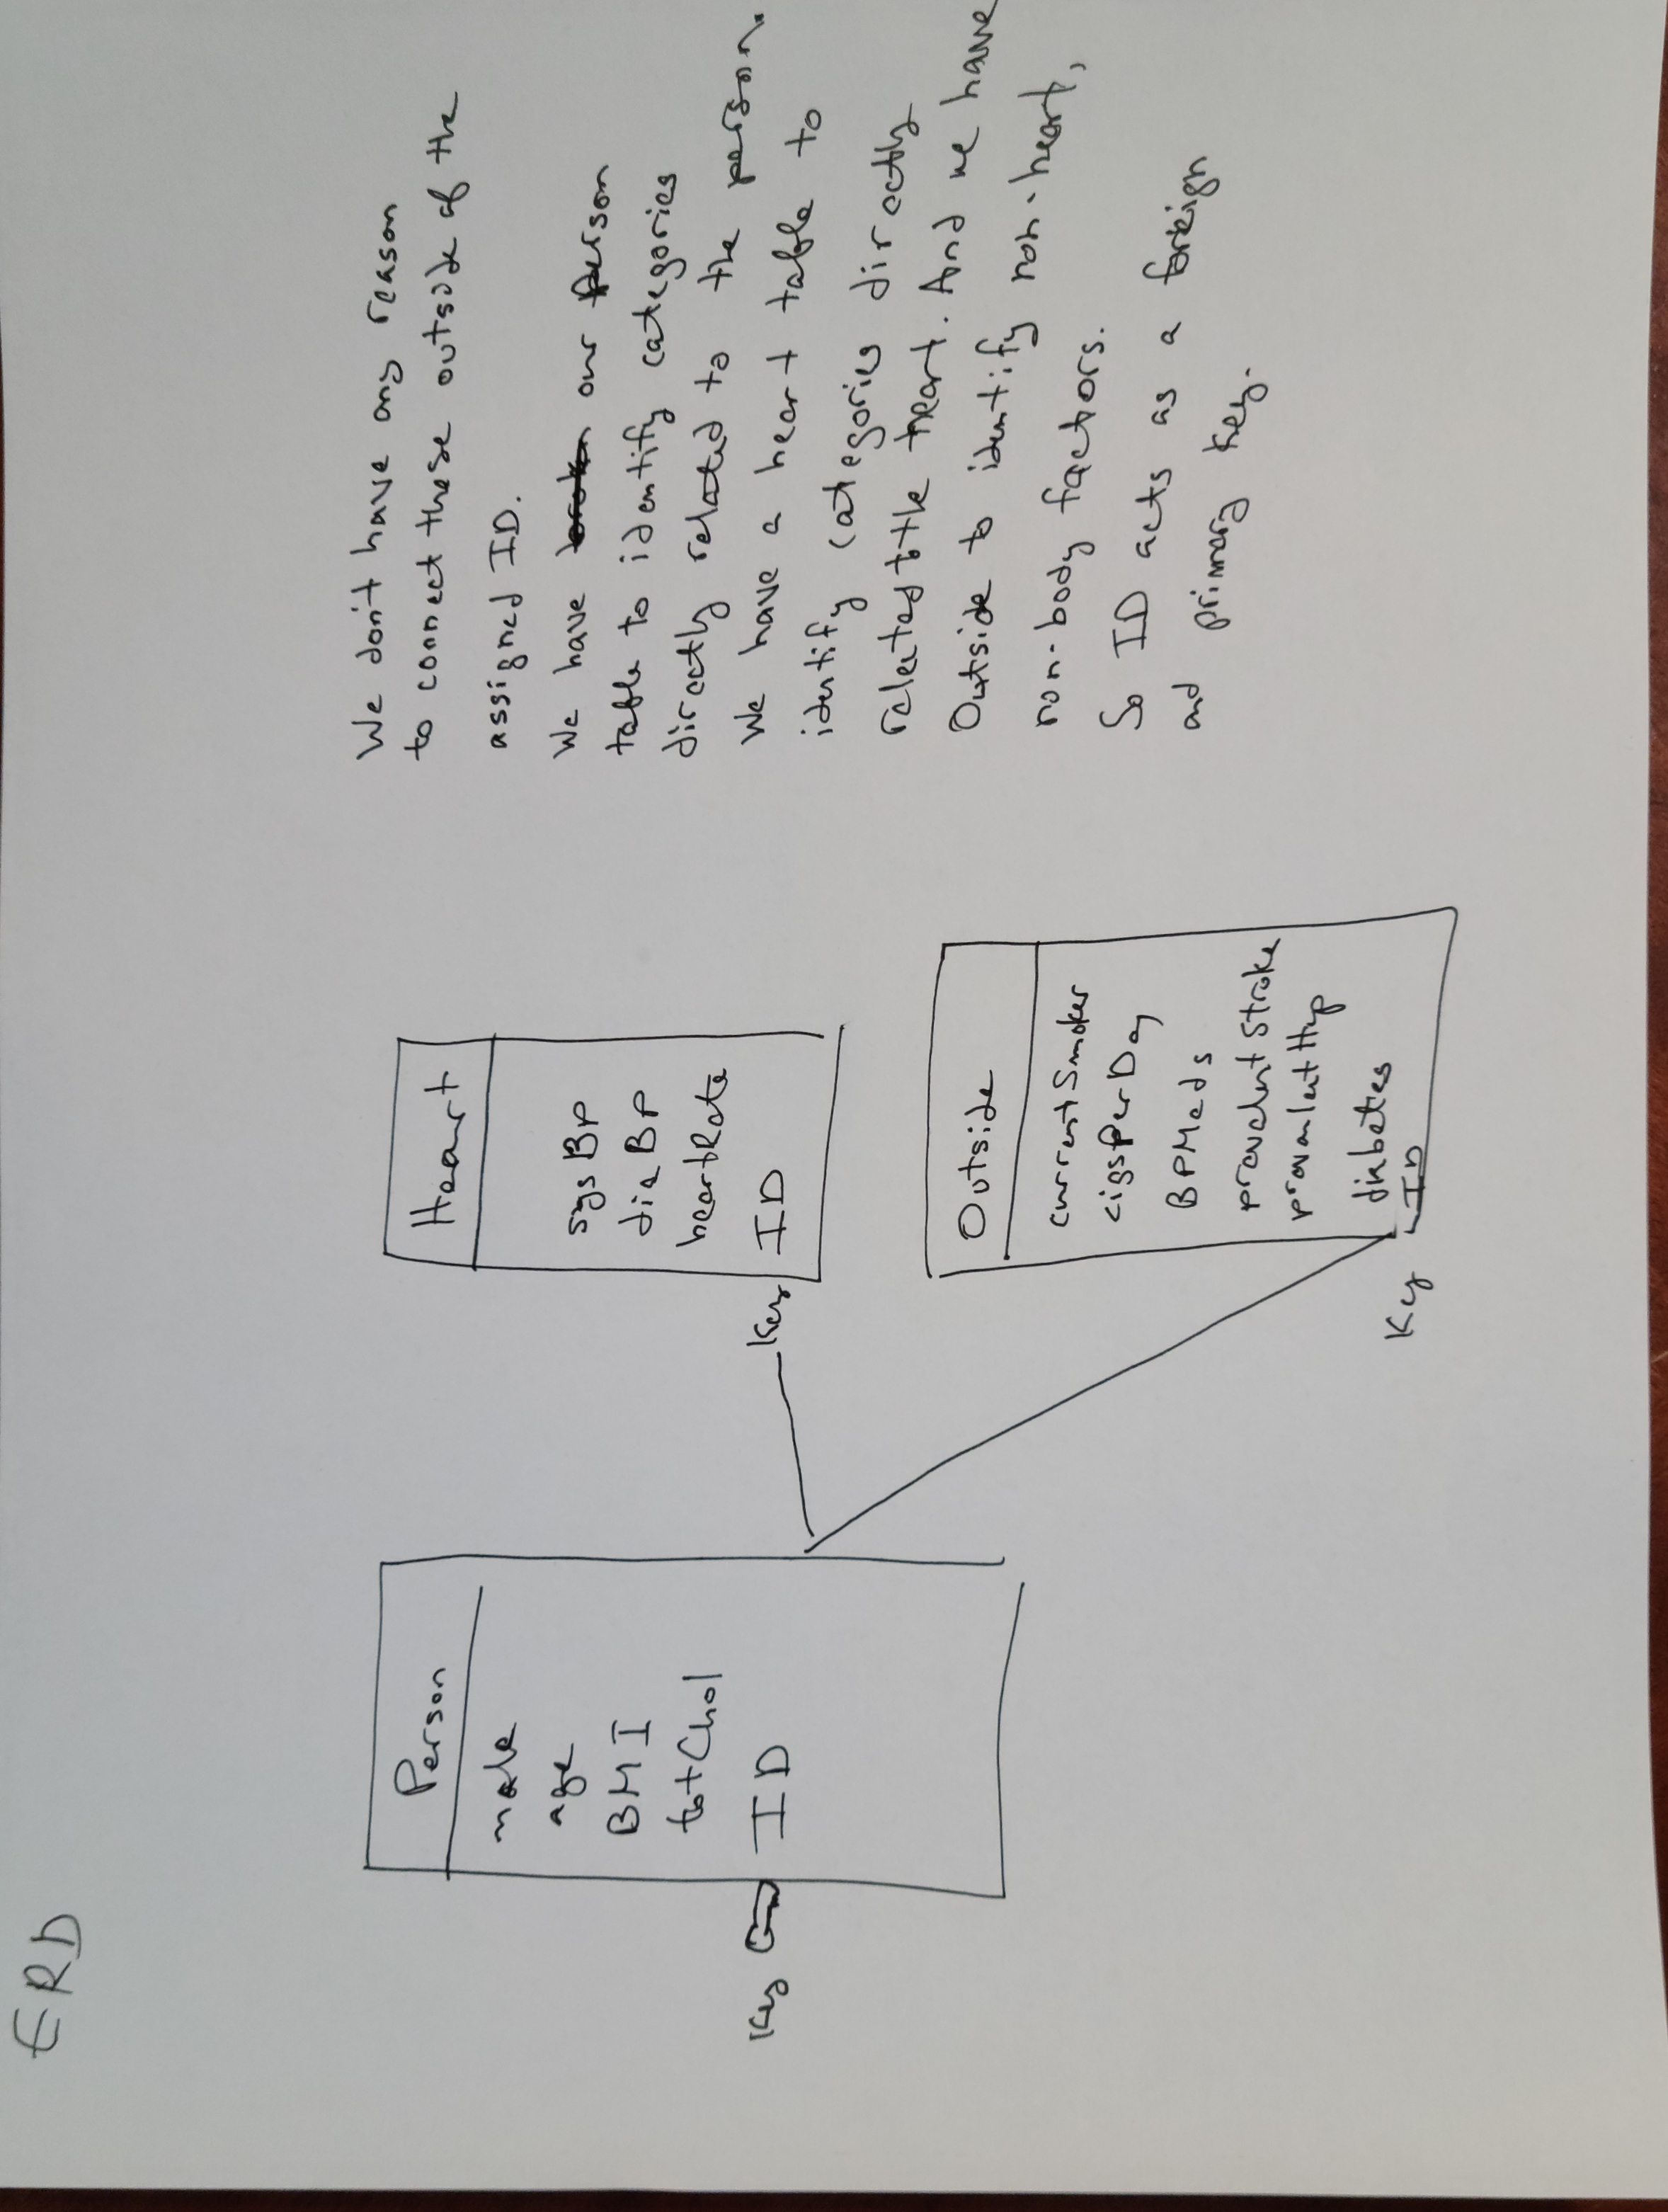 ERD
Person
male
age
BMI
totChol
Key ID
Heart
sysBP
diaBP
heartRate
Key ID
Outside
currentSmoker
cigsPerDay
BPMeds
prevalentStroke
prevalentHyp
diabetes
Key ID
We don't have any reason
to connect these outside of the
assigned ID.
We have our person
table to identify categories
directly related to the person.
We have a heart table to
identify categories directly
related to the heart. And we have
Outside to identify non-heart,
non-body factors.
So ID acts as a foreign
and primary key.